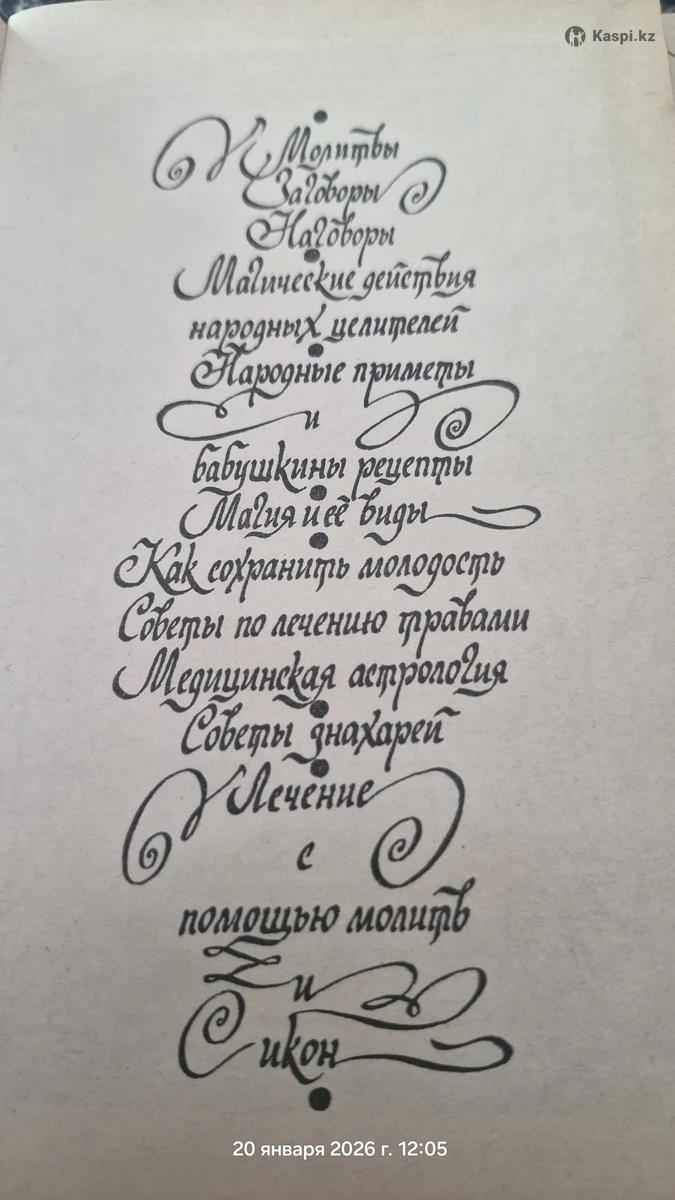 Kaspi.kz
Молитвы
Заговоры
Наговоры
Магические действия
народных целителей
Народные приметы
и
бабушкины рецепты
Магия и её виды
Как сохранить молодость
Советы по лечению травами
Медицинская астрология
Советы знахарей
Лечение
с
помощью молитв
и
икон
20 января 2026 г. 12:05